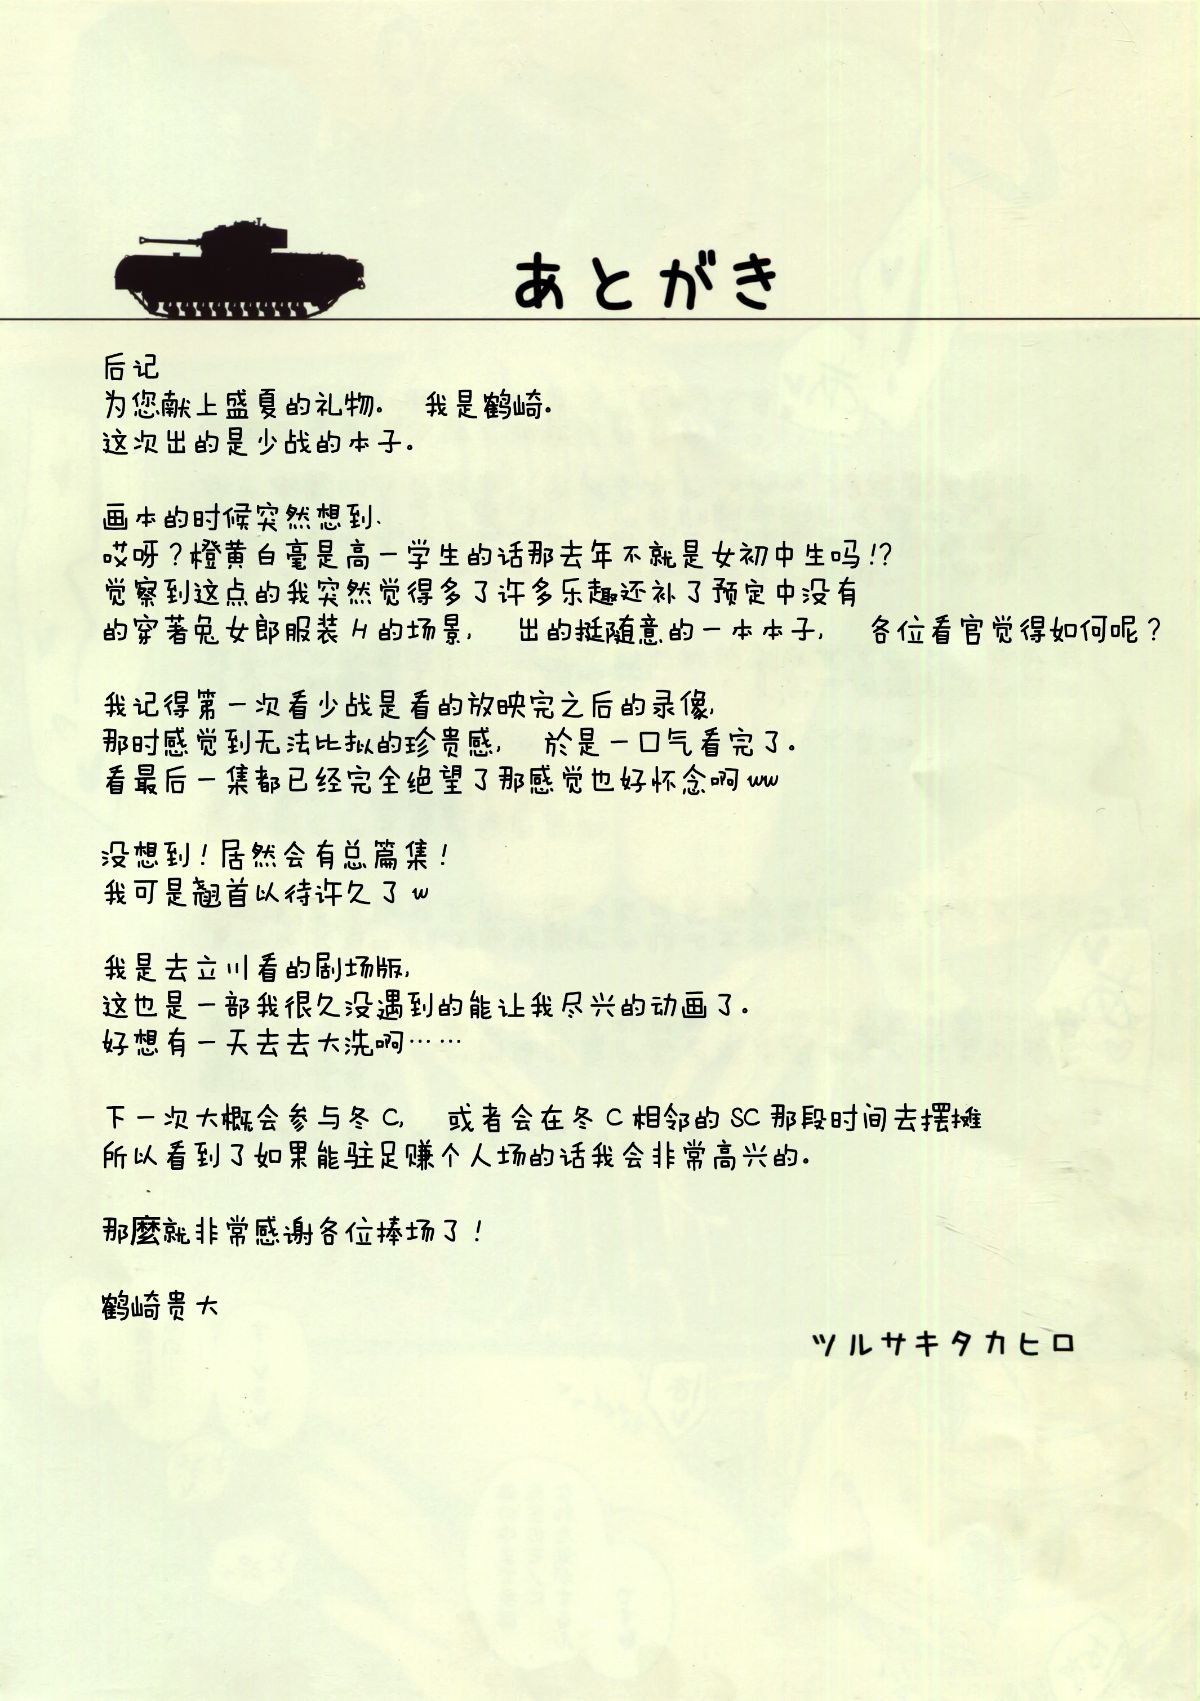 あとがき
后记
为您献上盛夏的礼物. 我是鹤崎.
这次出的是少战的本子。
画本的时候突然想到、
哎呀？橙黄白毫是高一学生的话那去年不就是女初中生吗!?
觉察到这点的我突然觉得多了许多乐趣还补了预定中没有
的穿著兔女郎服装H的场景, 出的挺随意的一本本子, 各位看官觉得如何呢？
我记得第一次看少战是看的放映完之后的录像,
那时感觉到无法比拟的珍贵感, 於是一口气看完了。
看最后一集都已经完全绝望了那感觉也好怀念啊ww
没想到！居然会有总篇集！
我可是翘首以待许久了w
我是去立川看的剧场版,
这也是一部我很久没遇到的能让我尽兴的动画了。
好想有一天去去大洗啊……
下一次大概会参与冬C, 或者会在冬C相邻的SC那段时间去摆摊
所以看到了如果能驻足赚个人场的话我会非常高兴的。
那麼就非常感谢各位捧场了！
鹤崎贵大
ツルサキタカヒロ